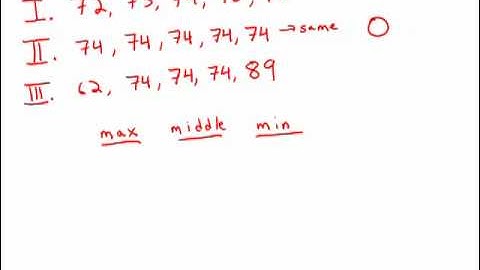 I. 72, 73, 74,
II. 74, 74, 74, 74, 74 → same 0
III. 62, 74, 74, 74, 89
max middle min